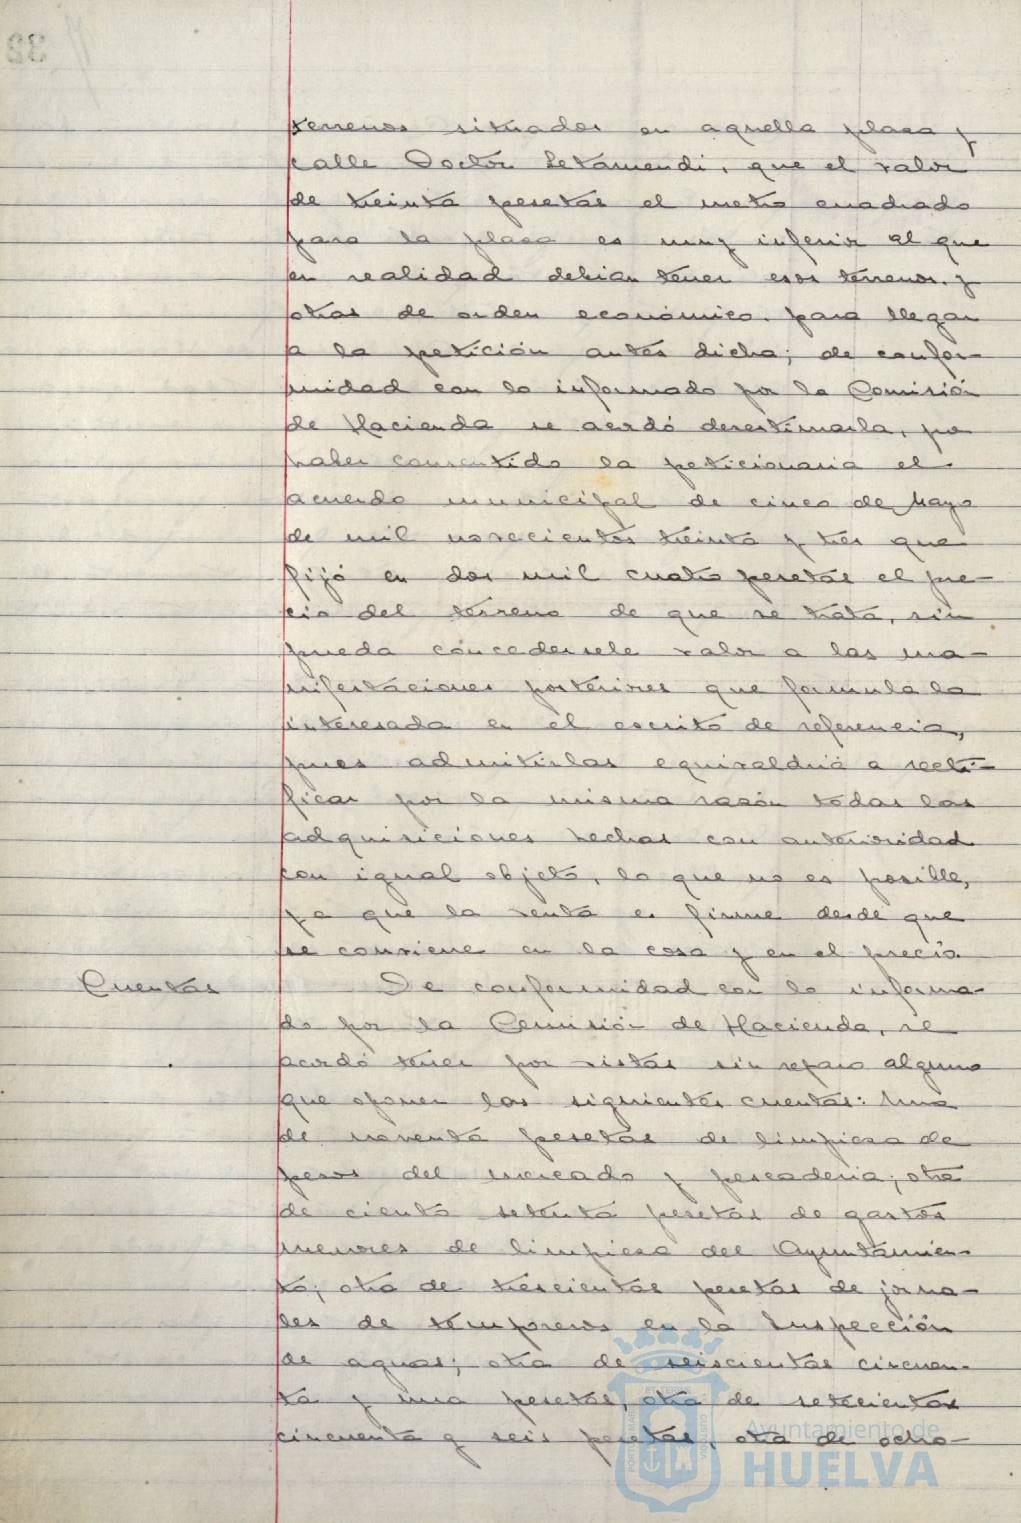 terrenos situados en aquella plaza y
calle Doctor Letamendi, que el valor
de treinta pesetas el metro cuadrado
para la plaza es muy inferior al que
en realidad debian tener esos terrenos. y
otras de orden económico. para llegar
a la petición antes dicha; de confor-
midad con lo informado por la Comisión
de Hacienda se acrdó desestimarla, por
haber consentido la peticionaria el
acuerdo municipal de cinco de Mayo
de mil novecientos treinta y tres que
fijó en dos mil cuatro pesetas el pre-
cio del terreno de que se trata, sin
pueda concedersele valor a las ma-
nifestaciones posteriores que formula la
interesada en el escrito de referencia,
pues admitirlas equivaldria a recti-
ficar por la misma razón todas las
adquisiciones hechas con anterioridad
con igual objeto, lo que no es posible,
ya que la venta es firme desde que
se conviene en la cosa y en el precio
Cuentas De conformidad con lo informa-
do por la Comisión de Hacienda, se
acordó tener por vistas sin reparo alguno
que oponer las siguientes cuentas: Una
de noventa pesetas de limpieza de
pesos del mercado y pescaderia; otra
de ciento setenta pesetas de gastos
menores de limpieza del Ayuntamien-
to; otra de trescientas pesetas de jorna-
les de temporeros en la Inspección
de aguas; otra de seiscientas cincuen-
ta y una pesetas, otra de setecientas
cincuenta y seis pesetas, otra de ocho-
Ayuntamiento de
HUELVA
32